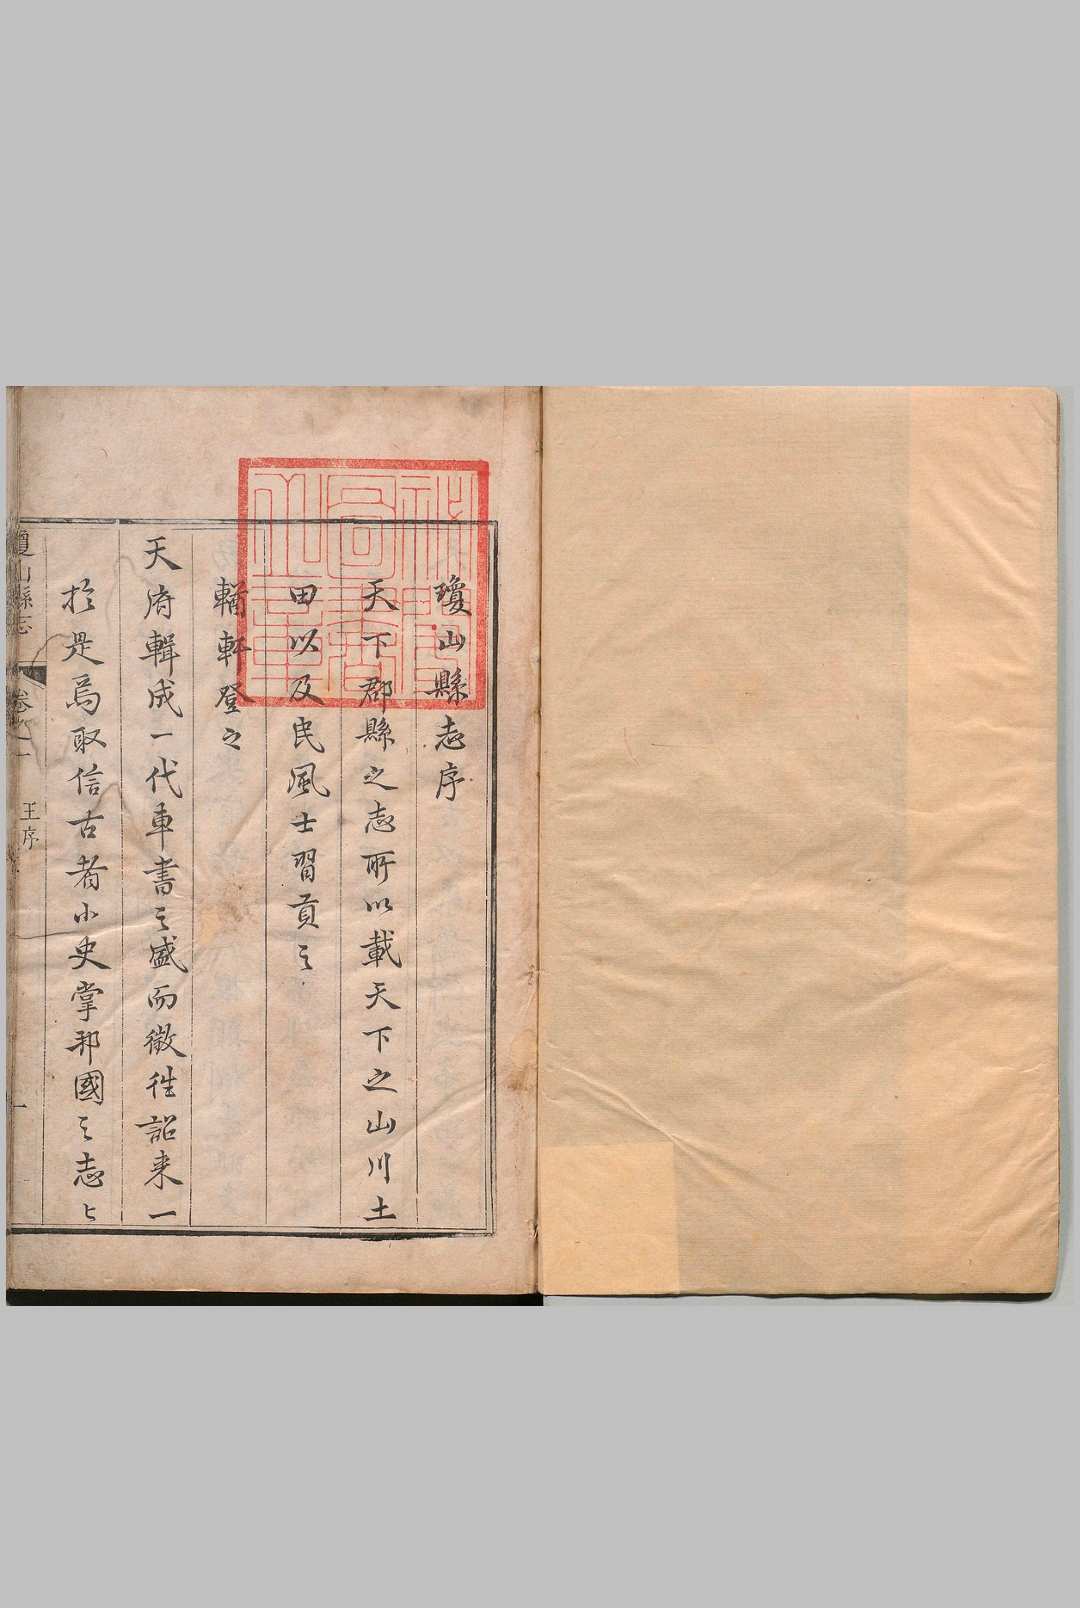 瓊山縣志序
天下郡縣之志所以載天下之山川土
田以及民風士習貢之
輶軒登之
天府輯成一代車書之盛而徵往詔来一
於是焉取信古者小史掌邦國之志匕
瓊山縣志
卷之一
王序
一